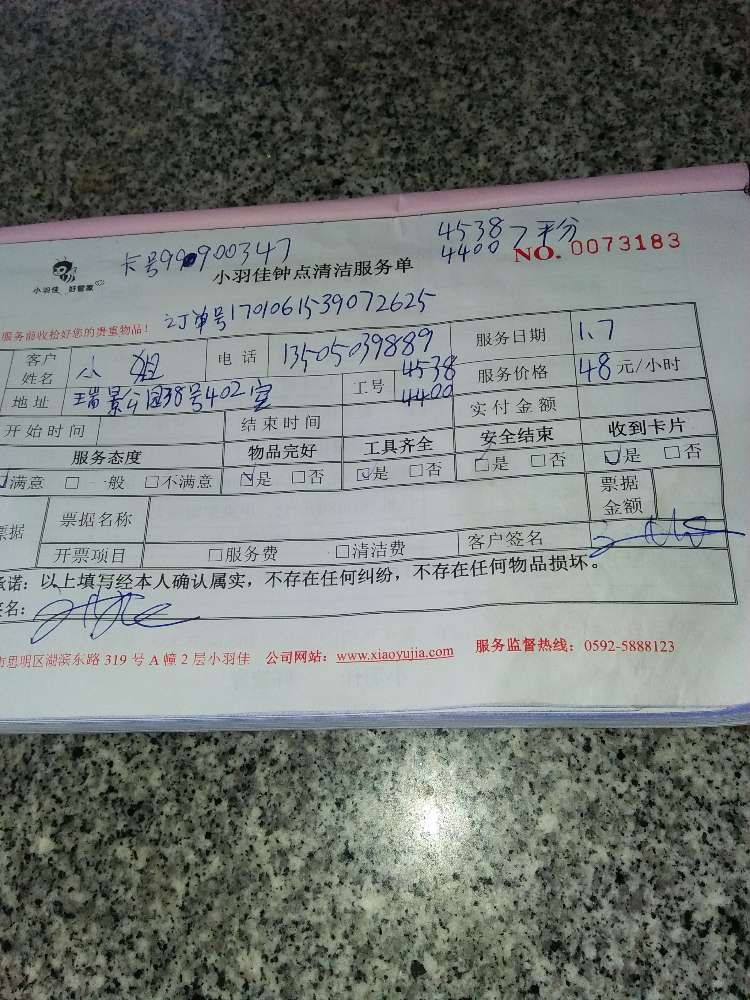 卡号99900347
4538 > 平分
4400
小羽佳 好管家
小羽佳钟点清洁服务单
NO. 0073183
服务前收拾好您的贵重物品!
订单号1701061539072625
客户姓名 小姐 电话 13505039889 服务日期 1.7
地址 瑞景公园38号402室 工号 4538 4400 服务价格 48元/小时
开始时间 结束时间 实付金额
服务态度 物品完好 工具齐全 安全结束 收到卡片
☑满意 □一般 □不满意 ☑是 □否 ☑是 □否 ☑是 □否 ☑是 □否
票据 票据名称 票据金额
开票项目 □服务费 □清洁费 客户签名
承诺：以上填写经本人确认属实，不存在任何纠纷，不存在任何物品损坏。
签名：
市思明区湖滨东路 319 号 A 幢 2 层小羽佳 公司网站：www.xiaoyujia.com 服务监督热线：0592-5888123